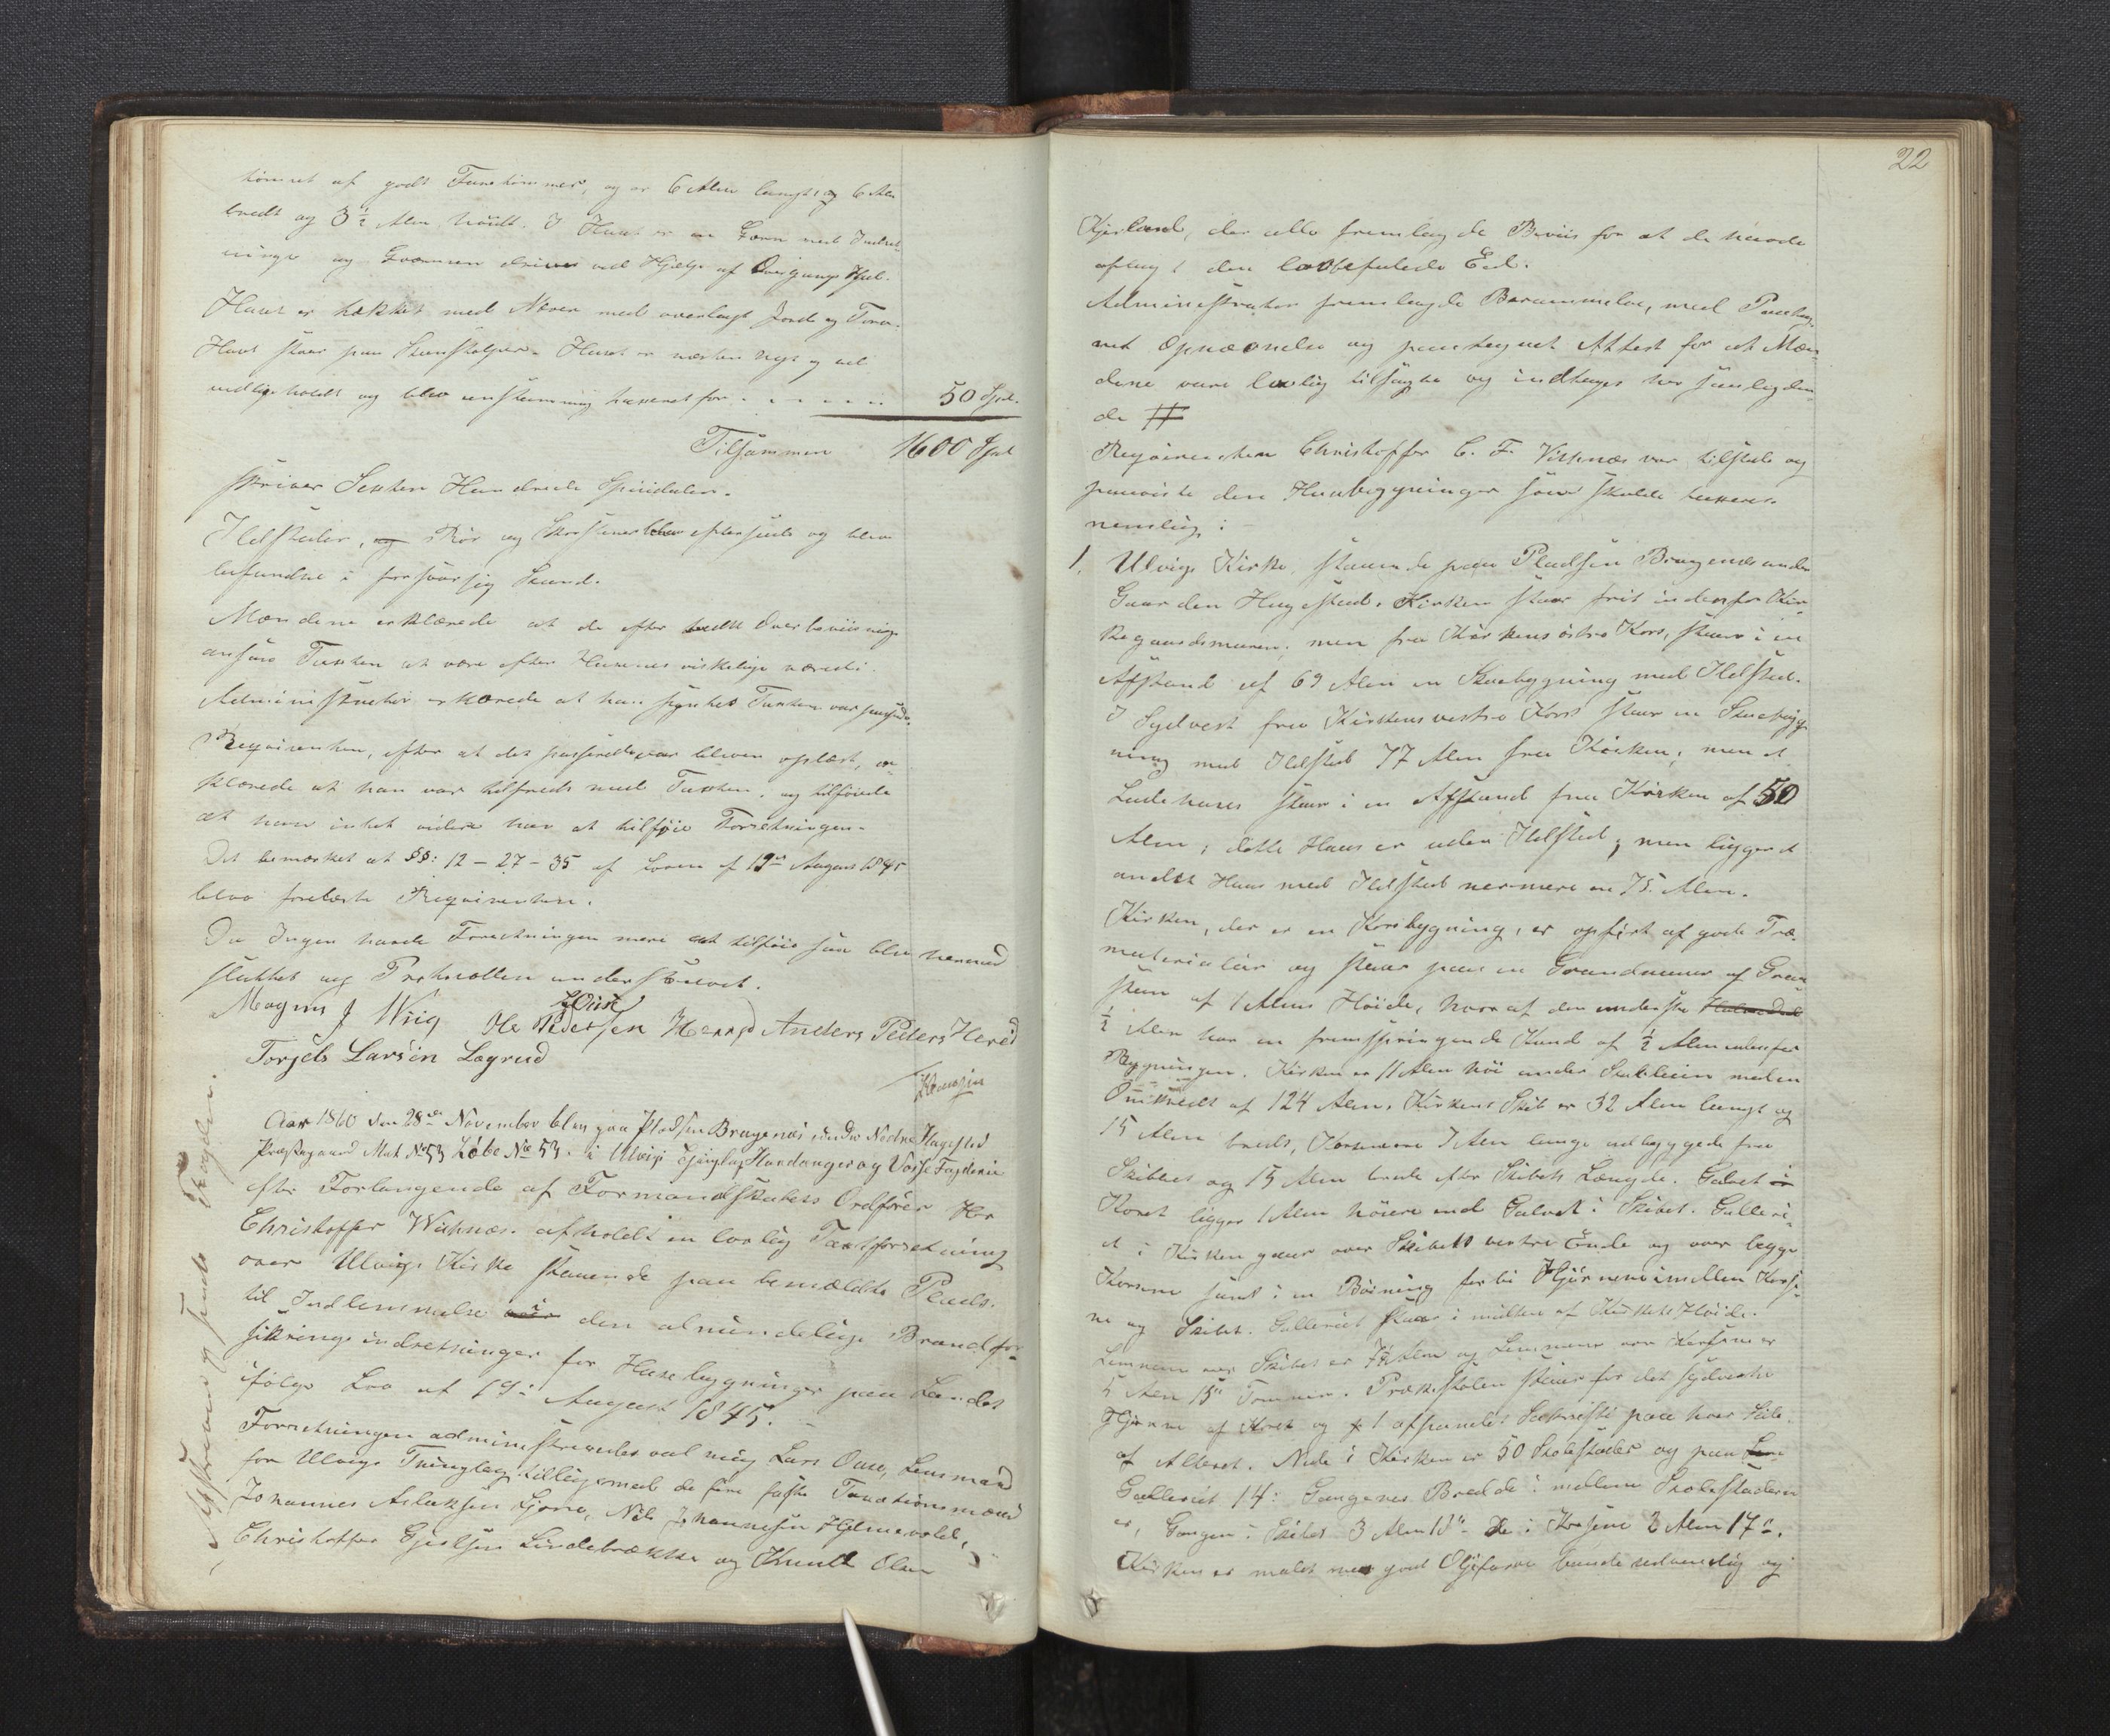 tömret af godt Furutömmer, og er 6 Alen langt, og 6 Al.
bredt og 3 ½ Alen höidt. I Huset er en Qværn med Indret-
ninger og Qværnen drives ved Hjælp af Hjul.
Huset er tækket med Næver med overlagt Jord og Torv.
Huset staar paa Steenstolper. Huset er næsten nyt og vel
vedligeholdt og blev eenstemmig taxeret for . . . . . . 50 Spd.
Tilsammen 1600 Spd
skriver Sexten Hundrede Speciedaler.
Ildsteder, og Rör og Skorstener blev efterseede og blev
befundne i forsvarlig Stand.
Mændene erklærede at de efter bedste Overbeviisning
ansaae Taxten at være efter Husenes virkelige værdi.
Administrator erklærede at han syntes Taxten var passende.
Reqvirenten, efter at det passerede var bleven oplæst, er-
klærede at han var tilfreds med Taxten, og tilföiede
at han intet videre har at tilföie Forretningen.
Det bemærkes at §§: 12 - 27 - 35 af Loven af 19de August 1845
blev forelæste Reqvirenten.
Da Ingen havde Forretningen mere at tilföie saa blev hermed
sluttet og Protocollen underskrevet.
LOuse
Magnus J Wiig Ole Pedersen Herred Anders Peders Hered
Torgels Larsen Lægreid
Aar 1860 den 28de November blev paa Pladsen Brugenæs under Nedre Hagestad
Præstegaard Mat No 53 Löbe No 53. i Ulvigs Thinglag Hardanger og Vosse Fogderie
efter Forlangende af Formandskabets Ordförer Hr
Christoffer Wiknæs afholdt en lovlig Taxtforretning
over Ulvigs Kirke staaende paa bemældte Plads.
til Indlemmelse i den almindelige Brandfor-
sikrings indretninger for Huusbygninger paa Landet
ifölge Lov af 19de August 1845.
Forretningen administreredes ved mig Lars Ouse, Lensmand
for Ulvigs Thinglag, tilligemed de fire faste Taxationsmænd
Johannes Aslaksen Lione, Nils Johannesen Hjelmevold,
Christoffer Gjertsen Lindebrække og Knudt Olsen
Afskrevet og sendt Fogden.
22
Kjerland, der alle fremlagde Beviis for at de havde
aflagt den lovbefalede Eed.
Administrator fremlagde Berammelse, med Paateg-
net Opnævnelse og paategnet Attest for at Mæn-
dene vare lovlig tilsagte og indtages her saalyden-
de #
Reqvirenten Christoffer C. F. Vikenæs var tilstede og
paaviste den Huusbygninger som skulde taxeres.
nemlig:
1. Ulvigs Kirke, staaende paa Pladsen Brugenæs under
Gaarden Hagestad. Kirken staar frit indenfor Kir-
kegaardsmuren; men fra Kirkens östre Kors, staar i en
Afstand af 69 Alen en Stuebygning med Ildsted.
I Sydvest fra Kirkens vestre Kors staar en Stuebyg-
ning med Ildsted 77 Alen fra Kirken; men et
Ladehuus staar i en Afstand fra Kirken af 50
Alen; dette Huus er uden Ildsted; men ligger et
andet Huus med Ildsted nærmere en 75 Alen.
Kirken, der er en Korsbygning, er opfört af gode Træ-
materialier og staar paa en Grundmuur af Graa-
steen af 1 Alens Höide, hvoraf den underste
½ Alen har en fremspringende Kand af ½ Alen udenfor
Bygningen. Kirken er 11 Alen höi under Stableien med en
Omkreds af 124 Alen. Kirkens Skib er 32 Alen langt og
15 Alen bredt, Korsene 7 Alen lange udbyggede fra
Skibet og 15 Alen brede efter Skibets Længde. Gulvet i
Koret ligger 1 Alen höiere end Gulvet i Skibet. Galleri-
et i Kirken gaar over Skibets vestre Ende og over begge
Korsene samt i en Böining forbi Hjörnene imellem Korse-
ne og Skibet. Galleriet staar i midten af Kirkens Höide.
Lemmene over Skibet er Alen og Lemmene over Korsene er
5 Alen 15" Tommer. Prækestolen staar for det sydvestre
Hjörne af Koret og 1 afpanelet Sakristi paa hver Side
af Alteret. Nede i Kirken er 50 Stolestader og paa
Galleriet 14: Gangenes Bredde imellem Stolestaderne
er, Gangen i Skibet 3 Alen 13" De i Korsene 2 Alen 17".
Kirken er malet med god Oljefarve baade udvendig og